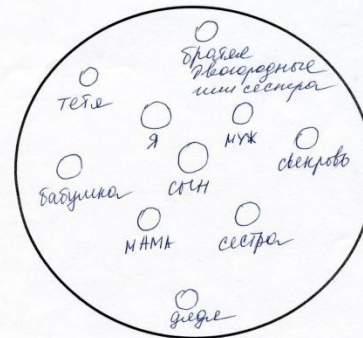 братья
двоюродные
или сестра
тетя
я
муж
свекровь
бабушка
сын
мама
сестра
дядя